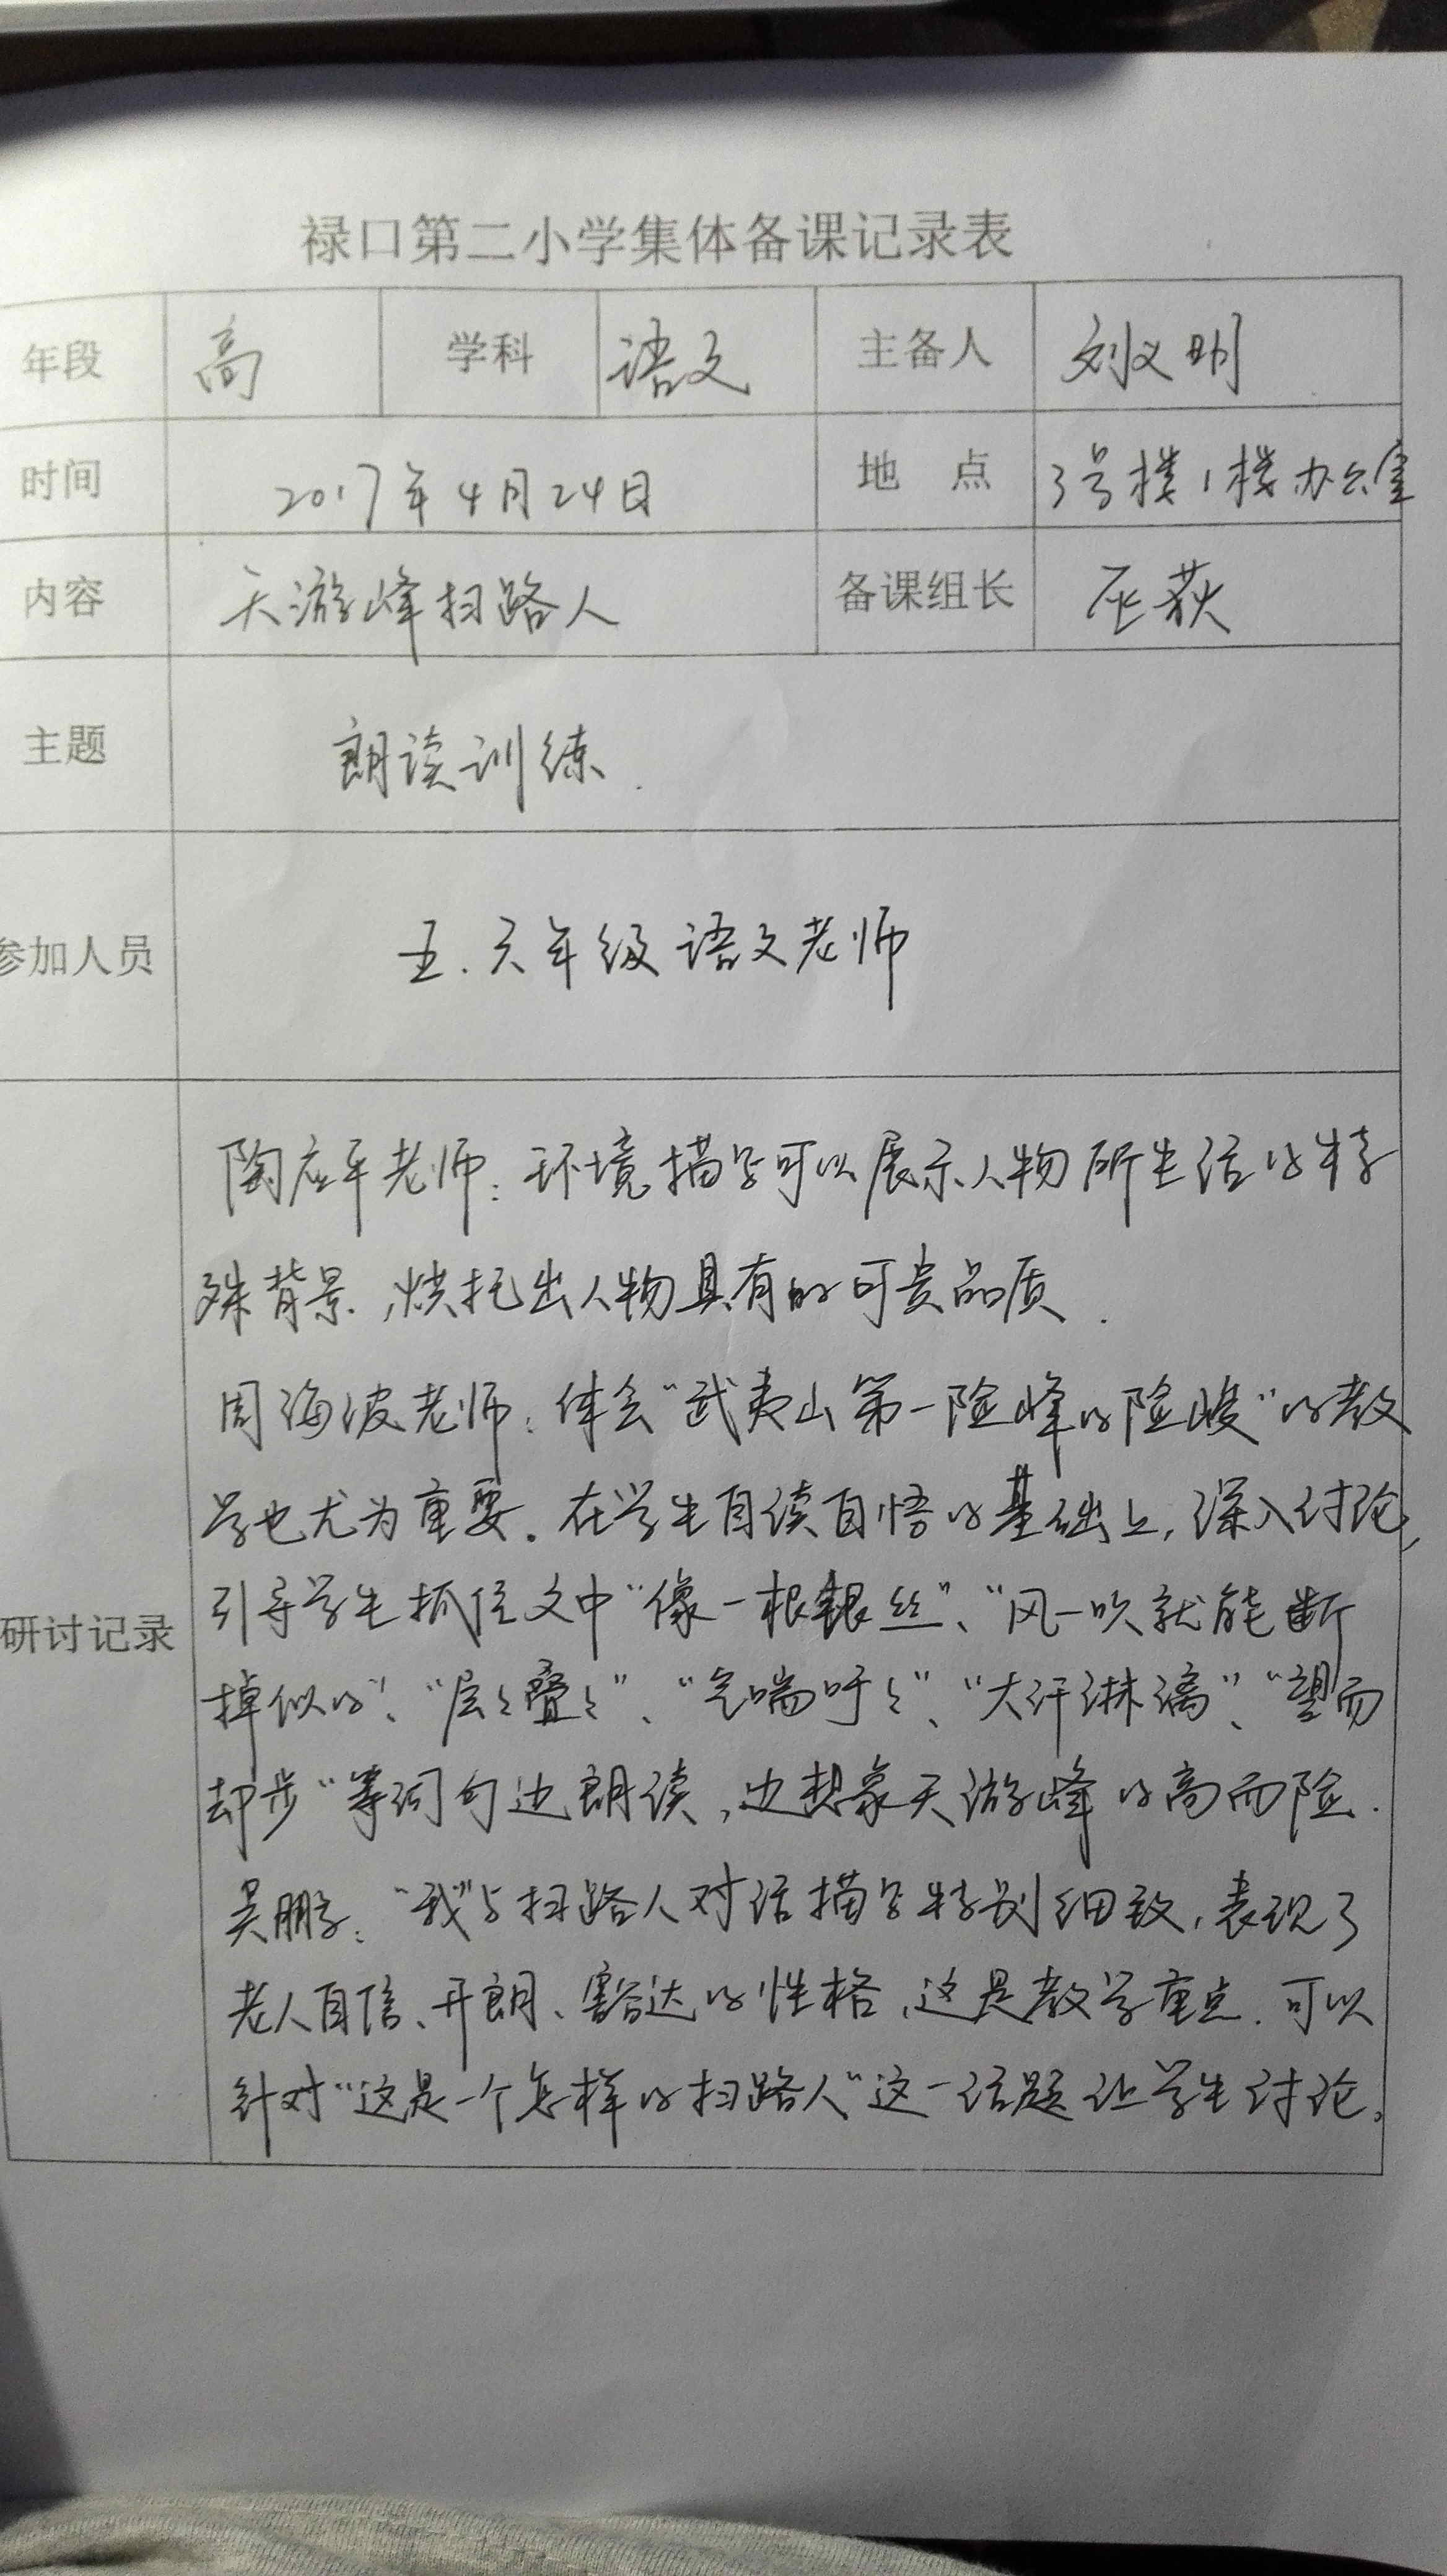 禄口第二小学集体备课记录表
年段 高 学科 语文 主备人 刘义明
时间 2017年4月24日 地点 3号楼1楼办公室
内容 天游峰扫路人 备课组长 荻
主题 朗读训练.
参加人员 五.六年级语文老师
研讨记录
陶应平老师:环境描写可以展示人物所生活的特
殊背景,烘托出人物具有的可贵品质.
周海波老师:体会“武夷山第一险峰的险峻”的教
学也尤为重要。在学生自读自悟的基础上,深入讨论,
引导学生抓住文中“像一根银丝”、“风一吹就能断
掉似的”、“层々叠々”、“气喘吁々”、“大汗淋漓”、“望而
却步”等词句边朗读,边想象天游峰的高而险.
吴鹏子:“我”与扫路人对话描写特别细致,表现了
老人自信、开朗、豁达的性格,这是教学重点.可以
针对“这是一个怎样的扫路人”这一话题让学生讨论。